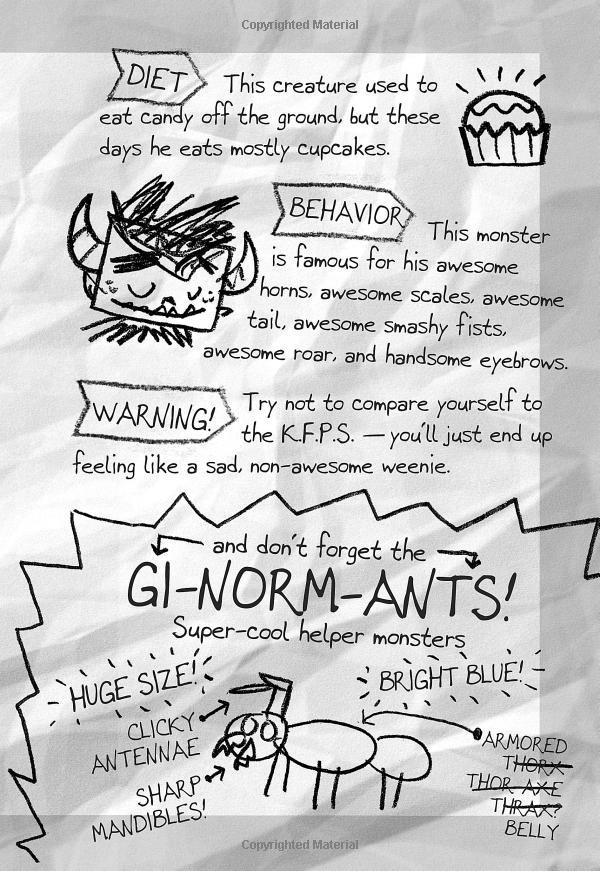 Copyrighted Material
DIET This creature used to
eat candy off the ground, but these
days he eats mostly cupcakes.
BEHAVIOR This monster
is famous for his awesome
horns, awesome scales, awesome
tail, awesome smashy fists,
awesome roar, and handsome eyebrows.
WARNING! Try not to compare yourself to
the K.F.P.S. — you'll just end up
feeling like a sad, non-awesome weenie.
and don't forget the
GI-NORM-ANTS!
Super-cool helper monsters
HUGE SIZE!
BRIGHT BLUE!
CLICKY
ANTENNAE
SHARP
MANDIBLES!
ARMORED
THORX
THOR AXE
THRAX?
BELLY
Copyrighted Material